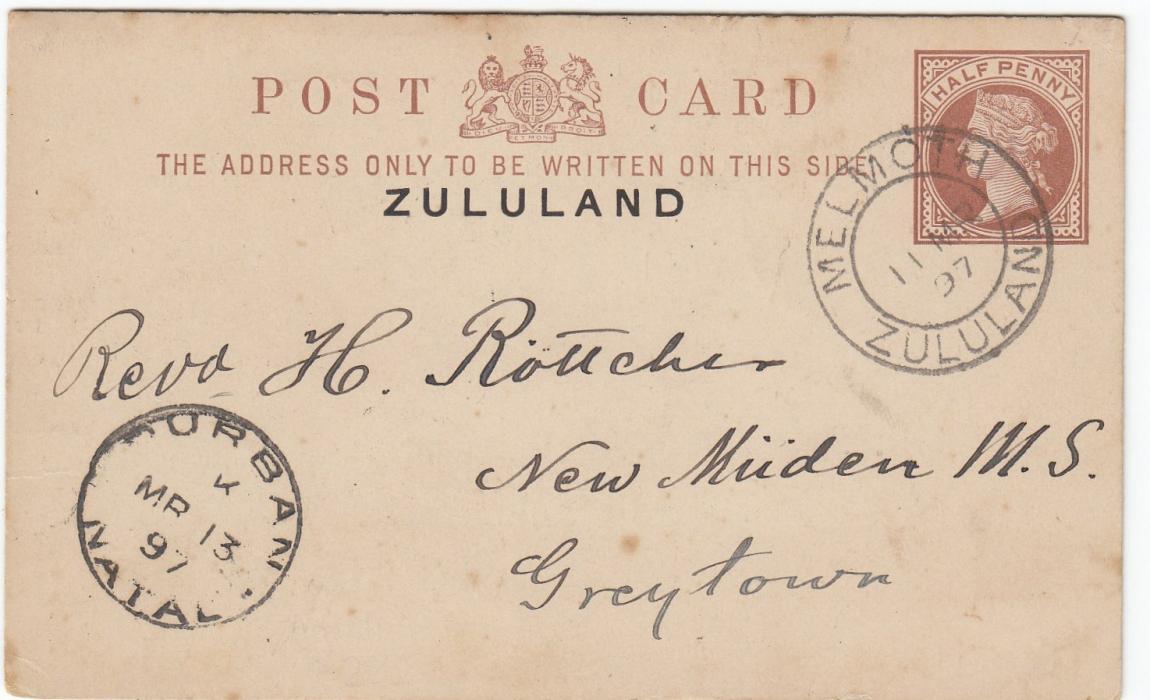 POST CARD
HALF PENNY
DIEU ET MON DROIT
THE ADDRESS ONLY TO BE WRITTEN ON THIS SIDE
ZULULAND
MELMOTH
11 MR
97
ZULULAND
Revd H. Röttcher
New Müden M.S.
Greytown
DURBAN
MR 13
97
NATAL